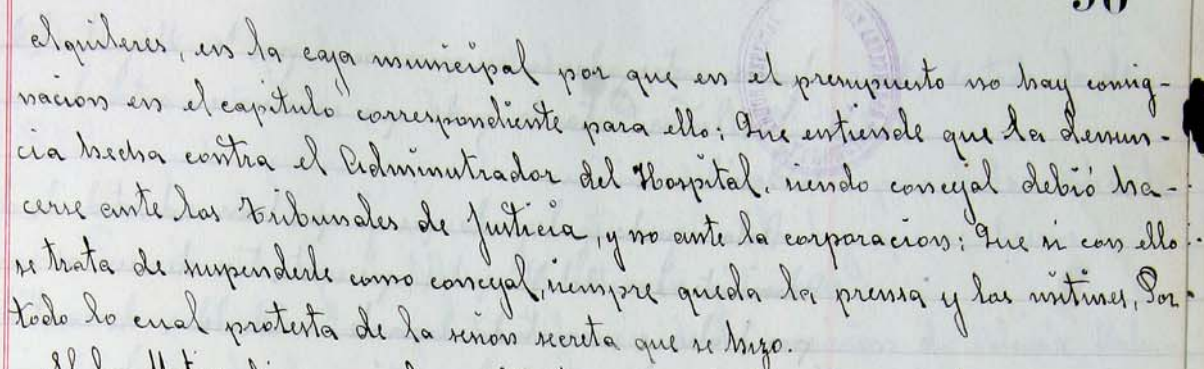 alquileres, en la caja municipal por que en el presupuesto no hay consig-
nacion en el capitulo correspondiente para ello: Que entiende que la denun-
cia hecha contra el Administrador del Hospital, siendo concejal debió ha-
cerse ante los Tribunales de Justicia, y no ante la corporacion: Que si con ello
se trata de suspenderle como concejal, siempre queda la prensa y los mitines, Por
todo lo cual protesta de la sesion secreta que se hizo.